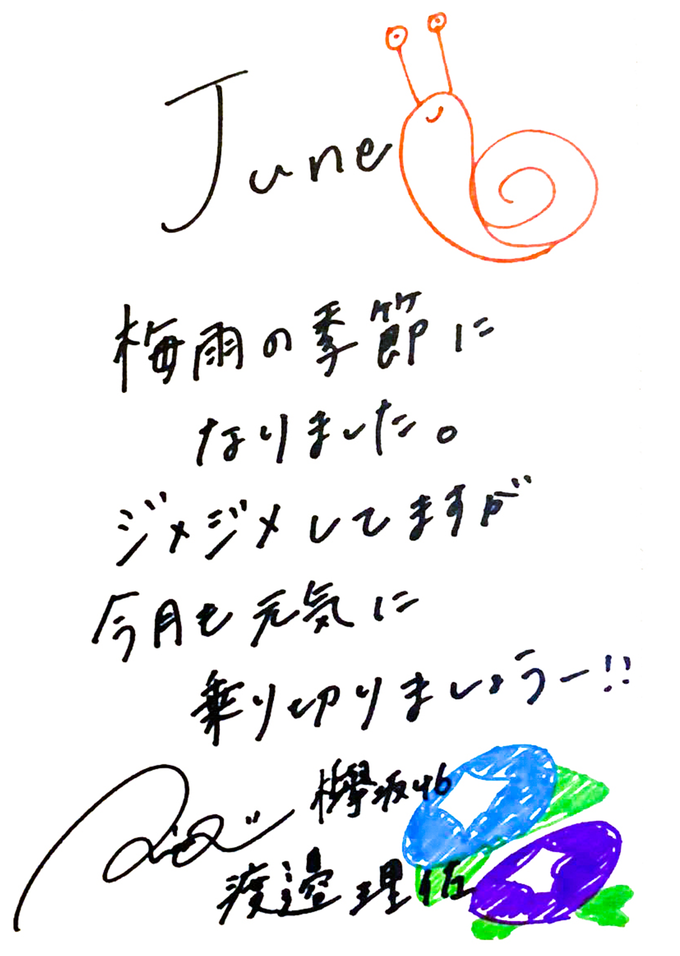 June
梅雨の季節に
なりました。
ジメジメしてますが
今月も元気に
乗り切りましょうー!!
欅坂46
渡邉理佐